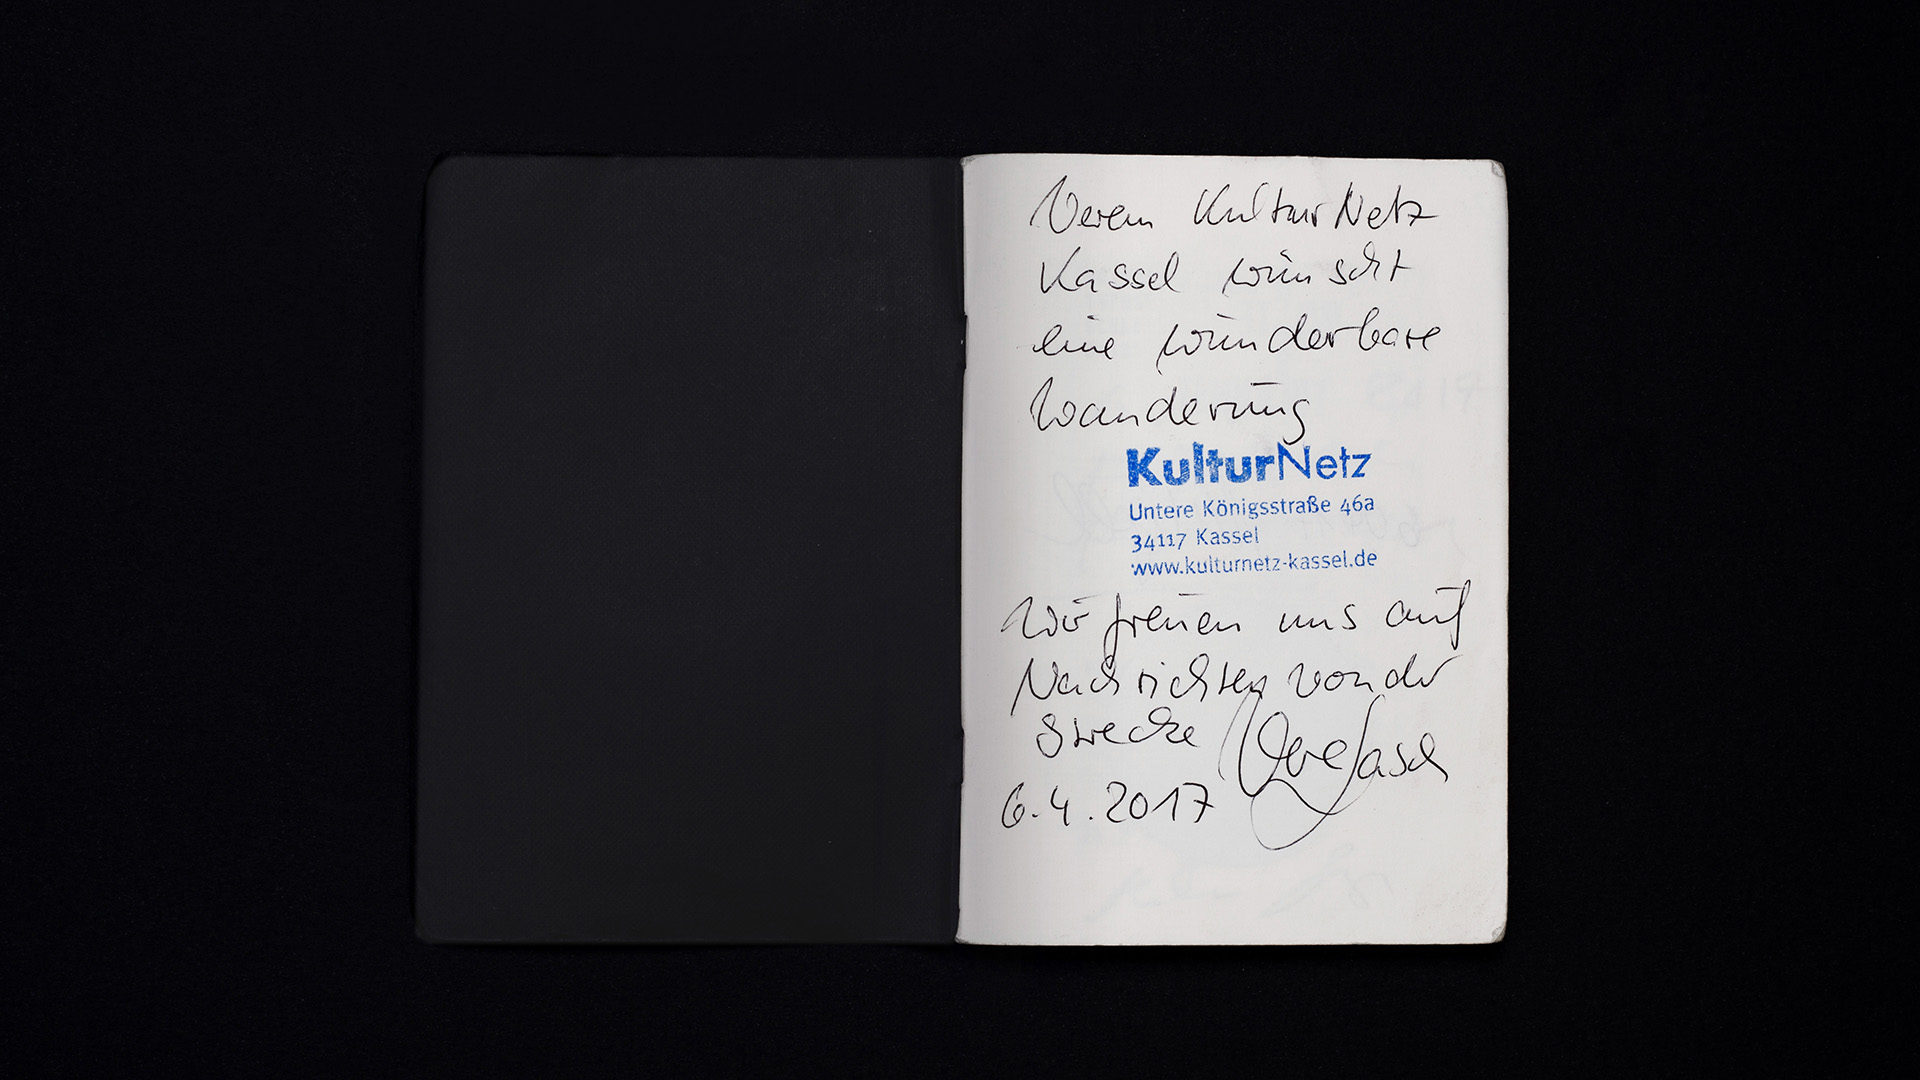 Verein KulturNetz
Kassel wünscht
eine wunderbare
Wanderung
KulturNetz
Untere Königsstraße 46a
34117 Kassel
www.kulturnetz-kassel.de
Wir freuen uns auf
Nachrichten von der
Strecke
6.4.2017